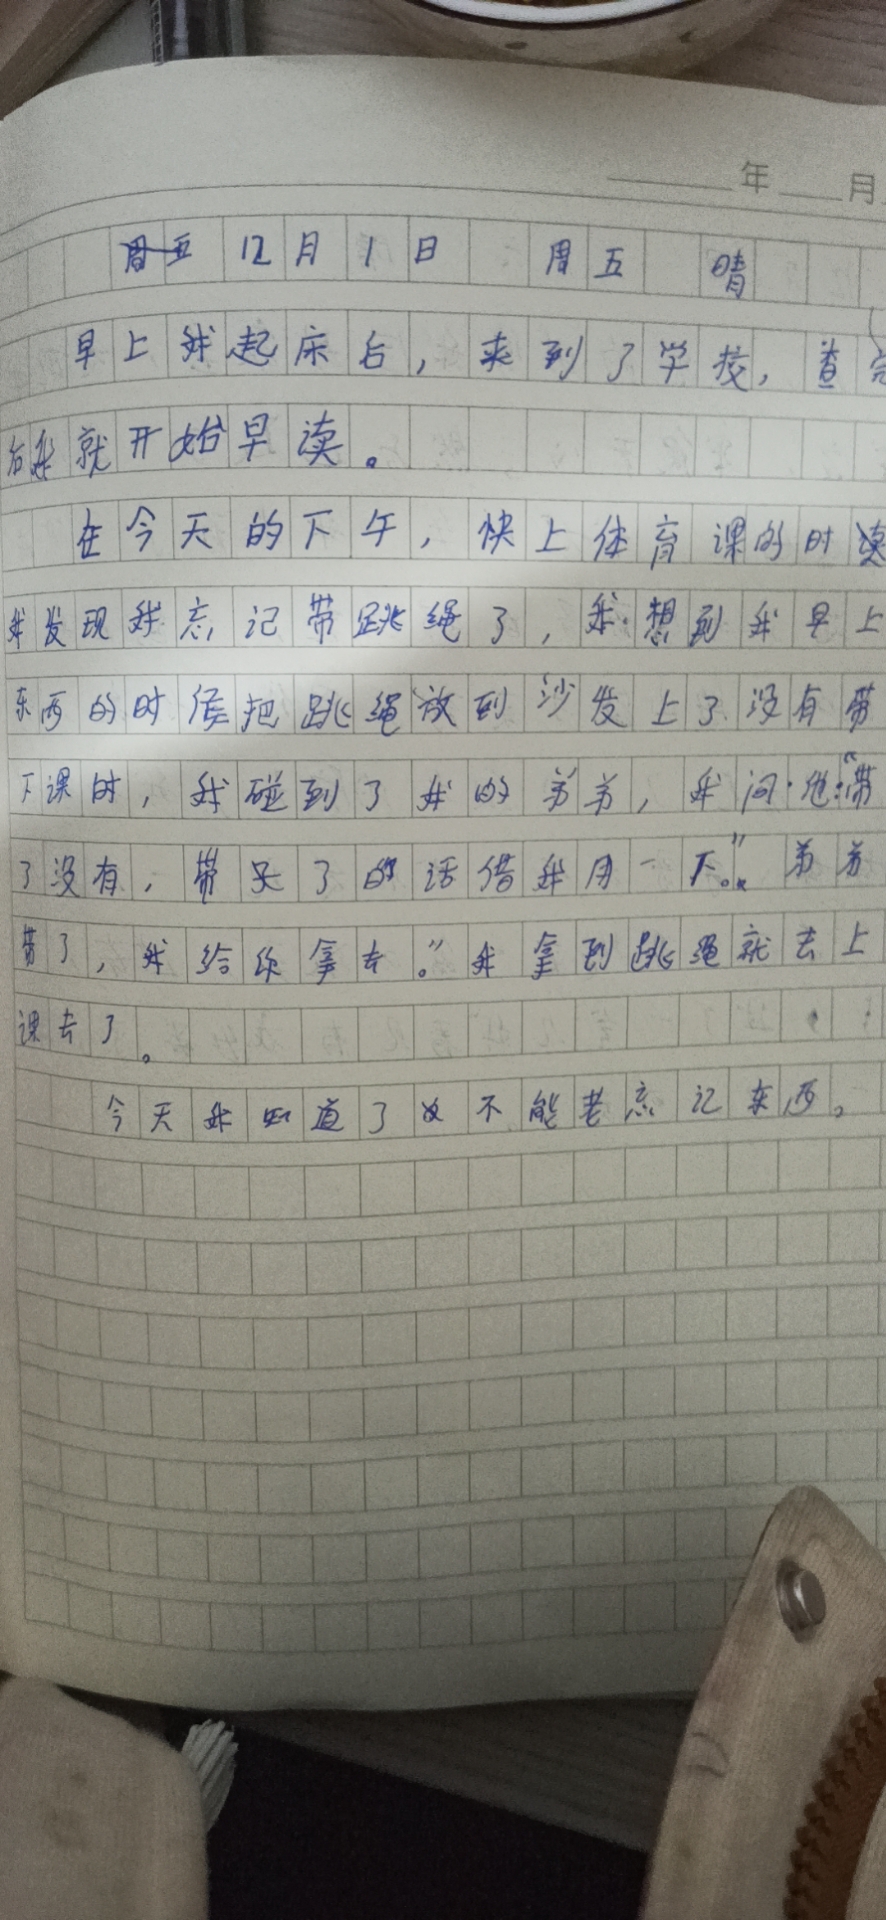 年 月
周五 12月1日 周五 晴
早上我起床后，来到了学校，查完
后我就开始早读。
在今天的下午，快上体育课的时
我发现我忘记带跳绳了，我想到我早上
东西的时候把跳绳放到沙发上了没有带
下课时，我碰到了我的弟弟，我问他:“带
了没有，带了的话借我用一下。”弟弟
带了，我给你拿去。”我拿到跳绳就去上
课去了。
今天我知道了不能老忘记东西。